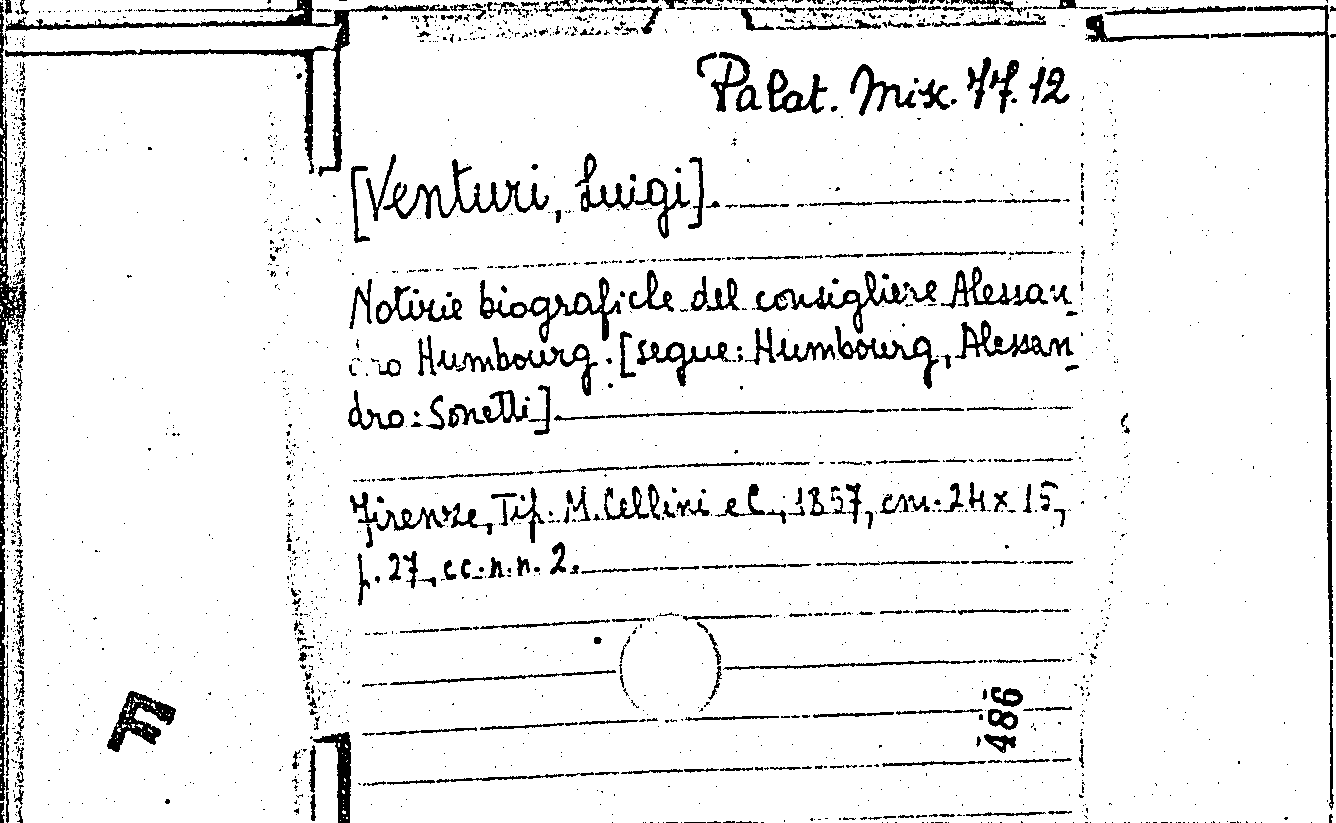 Palat. Misc. 77.12
[Venturi, Luigi].
Notizie biografiche del consigliere Alessan-
dro Humbourg. [segue: Humbourg, Alessan-
dro: Sonetti].
Firenze, Tip. M. Cellini e C., 1857, cm. 24 x 15,
p. 27, cc. n. n. 2.
486
F